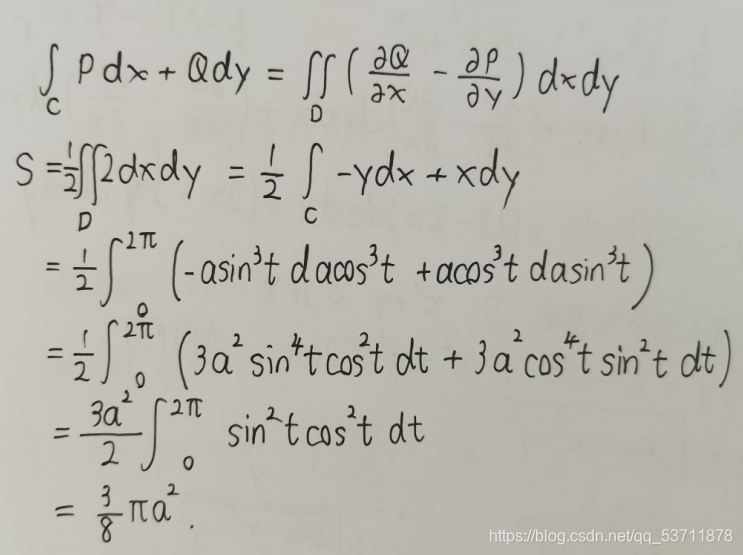 ∫_C Pdx + Qdy = ∬_D (∂Q/∂x - ∂P/∂y) dxdy
S = 1/2 ∬_D 2dxdy = 1/2 ∫_C -ydx + xdy
= 1/2 ∫_0^{2π} (-asin³t dacos³t + acos³t dasin³t)
= 1/2 ∫_0^{2π} (3a²sin⁴tcos²t dt + 3a²cos⁴t sin²t dt)
= 3a²/2 ∫_0^{2π} sin²tcos²t dt
= 3/8 πa².
https://blog.csdn.net/qq_53711878